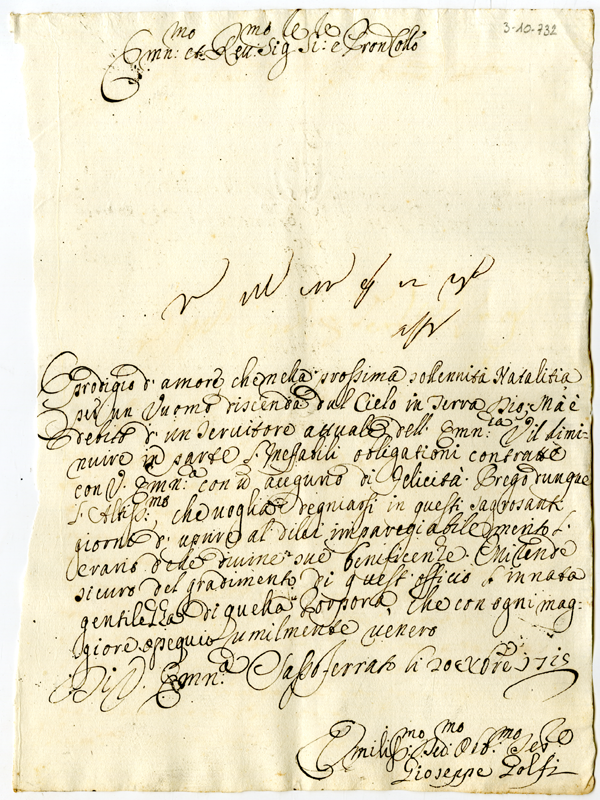 3-10-732
Emn: et Reu: Sig Si: e Pron Collo
mo mo le le
È prodigio d'amore che nella prossima solennità Natalitia
per un Vuomo discenda dal Cielo in terra Dio: Mà è
debito d'un seruitore attuale dell' Emn:za V il dimi-
nuire in parte l'inesfanti obligationi contratte
con V. Emn:a con un auguno di felicità. Prego dunque
l'Altiss:mo che voglia degniarsi in questi sagrosanti
giorni d'aprire al di lei impareggiabile merito l'
erario delle diuine sue beneficenze. Mi rende
sicuro del gradimento di quest'officio l'innata
gentilezza di quella Porpora, che con ogni mag:
giore ossequio humilmente venero
Di V. Emn:a Sassoferrato li 20 Xbre 1715
Vmiliss:mo Deu:mo Obb:mo Se:re
Gioseppe Golfi